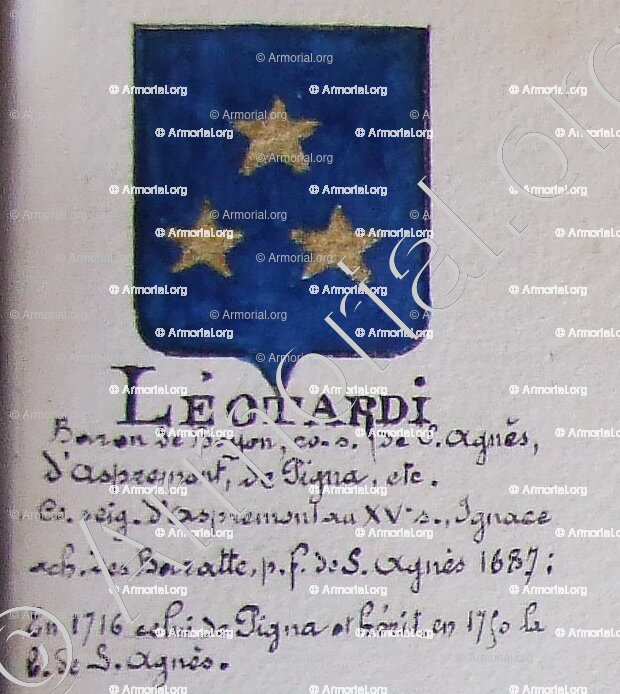 LÉOTARDI
Baron de , co-s. de S. Agnès,
d'aspremont, de Pigna, etc.
Co. seig. d'aspremont au XVe s., Ignace
ach. des Baratte, p. f. de S. Agnès 1687 ;
En 1716 celui de Pigna et hérit. en 1750 la
de S. Agnès.
© Armorial.org